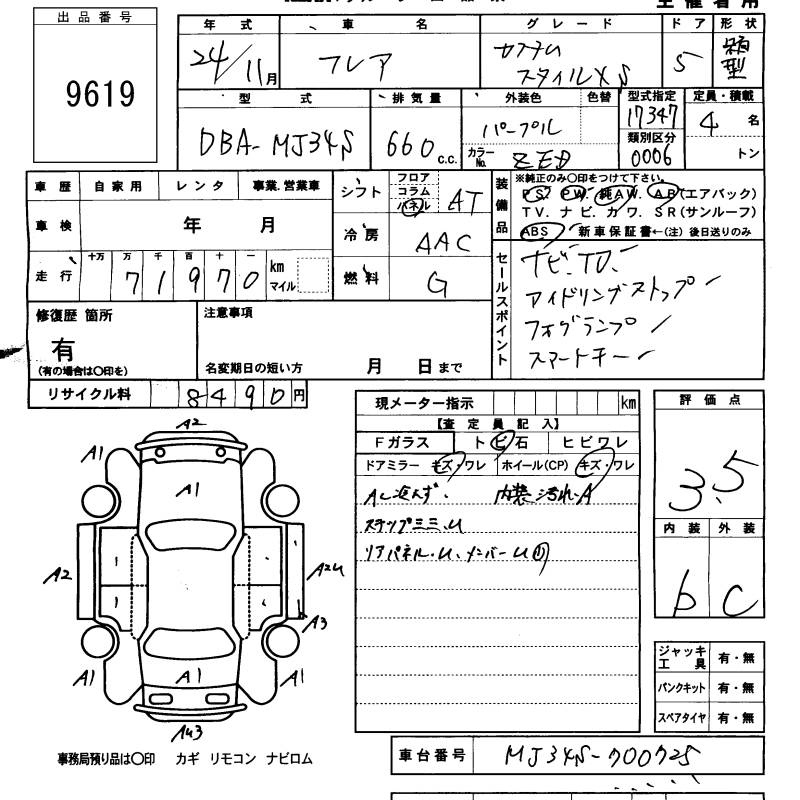 主催者用
出品番号
9619
年式 車名 グレード ドア 形状
24/11月 フレア カスタムスタイルXS 5 箱型
型式 排気量 外装色 色替 型式指定 定員・積載
DBA-MJ34S 660c.c. パープル 17347 4名
カラーNo. ZED 類別区分 0006 トン
車歴 自家用 レンタ 事業.営業車
車検 年 月
走行 十万 万 千 百 十 一
71970 km マイル
シフト フロア コラム パネル AT
冷房 AAC
燃料 G
装備品 ※純正のみ〇印をつけて下さい。
PS. PW. 純AW. AB(エアバック)
TV. ナビ. カワ. SR(サンルーフ)
ABS 新車保証書←(注) 後日送りのみ
セールスポイント
ナビ.TV.
アイドリングストップ
フォグランプ
スマートキー
修復歴 箇所 注意事項
有
(有の場合は〇印を) 名変期日の短い方 月 日まで
リサイクル料 8490円
現メーター指示 km
【査定員記入】
Fガラス トビ石 ヒビワレ
ドアミラー キズ・ワレ ホイール(CP) キズ・ワレ
内装汚れ.A
ステップミミ.U
リアパネル.U、メンバーU
評価点
3.5
内装 外装
b C
A2
A1 A1
A1
A2 A2U
A3
A1 A1 A1
AU3
ジャッキ工具 有・無
パンクキット 有・無
スペアタイヤ 有・無
事務局預り品は〇印 カギ リモコン ナビロム
車台番号 MJ34S-700725